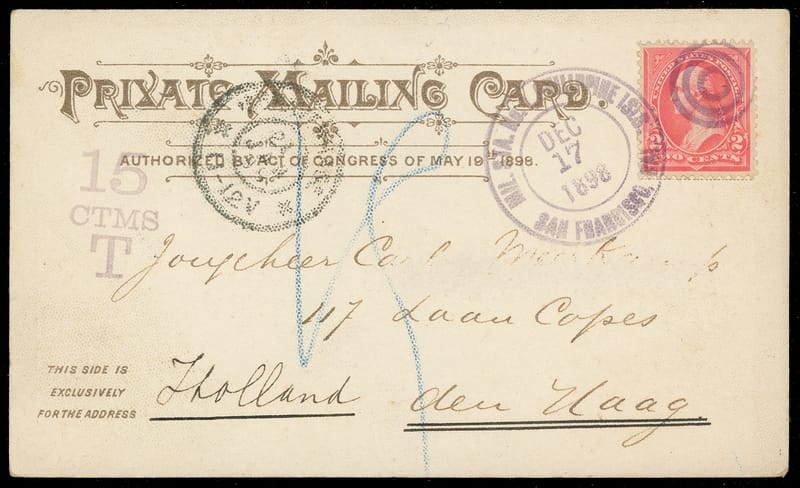 PRIVATE MAILING CARD.
AUTHORIZED BY ACT OF CONGRESS OF MAY 19TH 1898.
UNITED STATES POSTAGE
2 2
TWO CENTS
MIL. STA. PHILIPPINE ISL'DS
SAN FRANCISCO,
DEC
17
1898
15
CTMS
T
Jonghheer Carl
117 Laan Copes
Holland den Haag.
THIS SIDE IS
EXCLUSIVELY
FOR THE ADDRESS